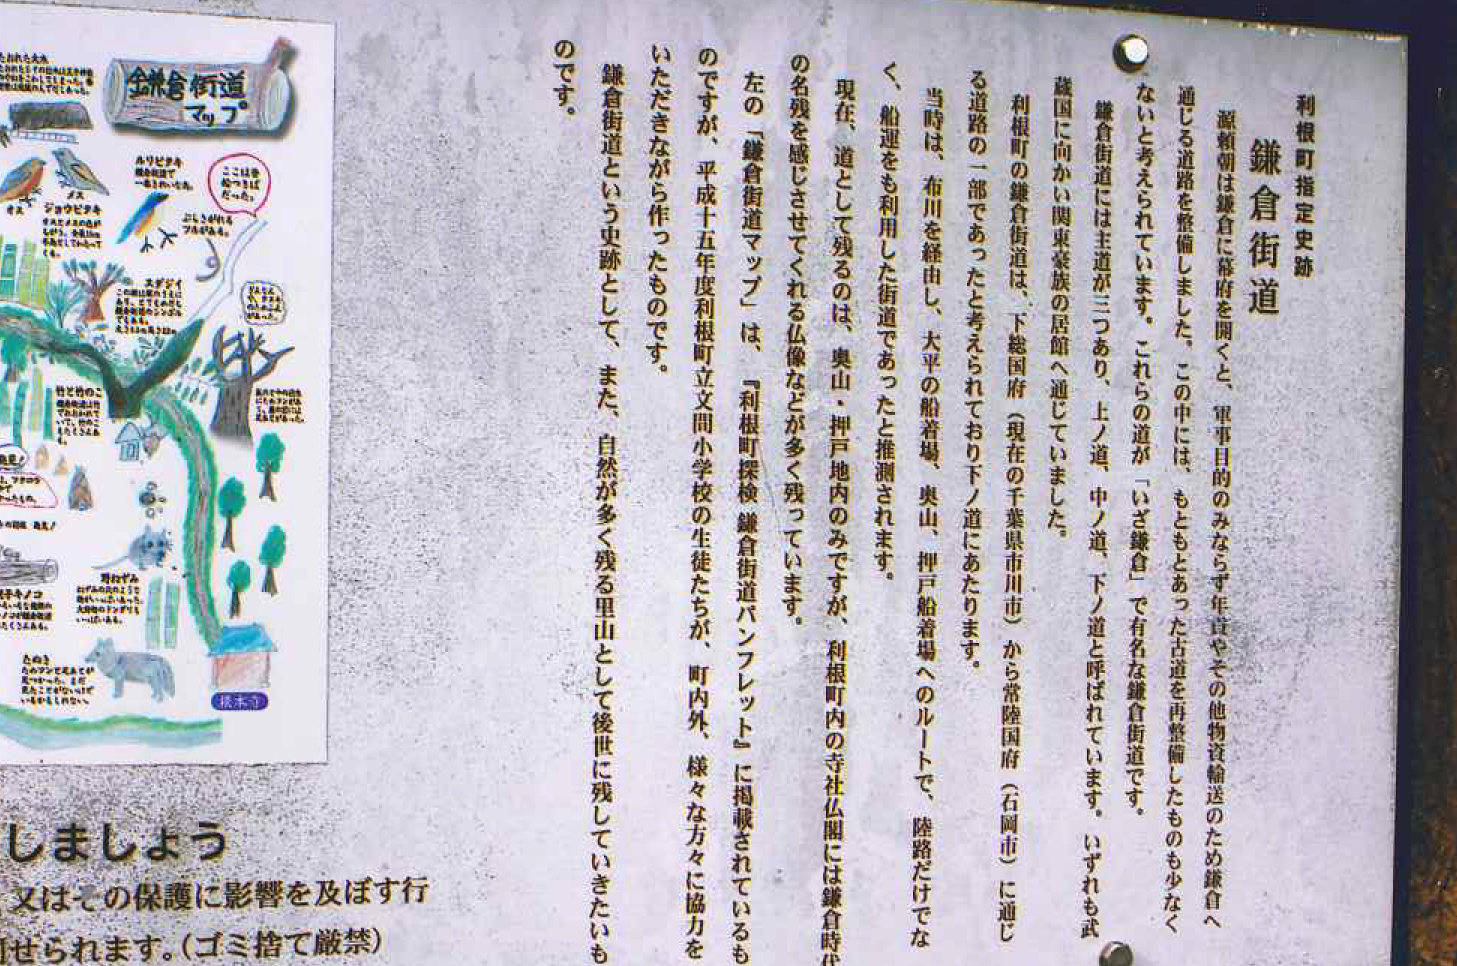 利根町指定史跡
鎌倉街道
源頼朝は鎌倉に幕府を開くと、軍事目的のみならず年貢やその他物資輸送のため鎌倉へ
通じる道路を整備しました。この中には、もともとあった古道を再整備したものも少なく
ないと考えられています。これらの道が「いざ鎌倉」で有名な鎌倉街道です。
鎌倉街道には主道が三つあり、上ノ道、中ノ道、下ノ道と呼ばれています。いずれも武
蔵国に向かい関東豪族の居館へ通じていました。
利根町の鎌倉街道は、下総国府（現在の千葉県市川市）から常陸国府（石岡市）に通じ
る道路の一部であったと考えられており下ノ道にあたります。
当時は、布川を経由し、大平の船着場、奥山、押戸船着場へのルートで、陸路だけでな
く、船運をも利用した街道であったと推測されます。
現在、道として残るのは、奥山・押戸地内のみですが、利根町内の寺社仏閣には鎌倉時代
の名残を感じさせてくれる仏像などが多く残っています。
左の「鎌倉街道マップ」は、『利根町探検 鎌倉街道パンフレット』に掲載されているも
のですが、平成十五年度利根町立文間小学校の生徒たちが、町内外、様々な方々に協力を
いただきながら作ったものです。
鎌倉街道という史跡として、また、自然が多く残る里山として後世に残していきたいも
のです。
鎌倉街道
マップ
ルリビタキ
ここは昔
船つきば
だった。
メス
オス
ジョウビタキ
スダジイ
竹と竹のこ
野ねずみ
たぬき
根本寺
しましょう
又はその保護に影響を及ぼす行
せられます。（ゴミ捨て厳禁）